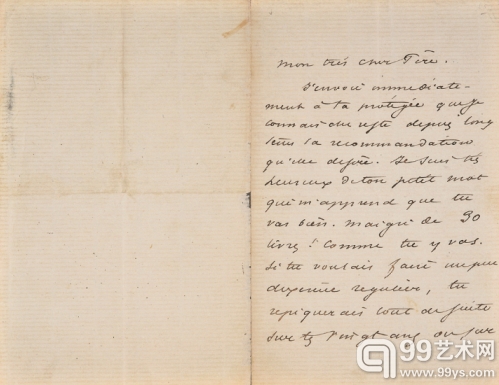 mon très cher Père.
J'envoie immediate-
ment à ta protégée que je
connais depuis long
tems la recommandation
qu'elle desire. Je suis très
heureux de ton petit mot
qui m'apprend que tu
vas bien. maigri de 30
livres! Comme tu y vas.
Si tu voulais faire un peu
d'exercice regulier, tu
repiquerais tout de suite
sur tes vingt ans ou sur
99艺术网
www.99ys.com